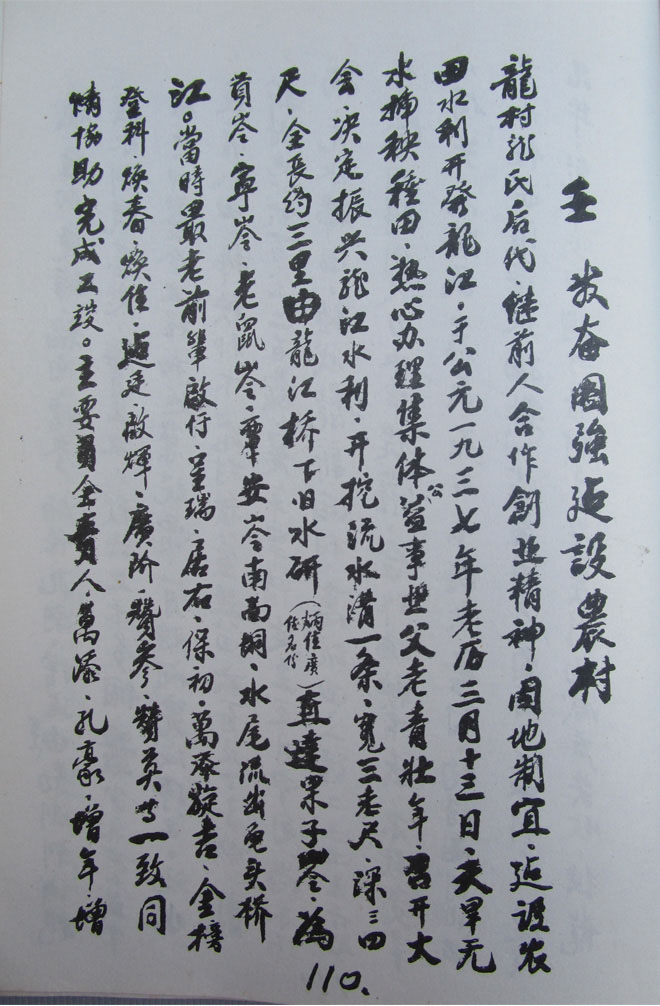 壬 发奋图強建設農村
龍村龙氏后代、继前人合作創造精神、因地制宜、建設农
田水利开發龍江、于公元一九三七年老历三月十三日、天旱无
水插秧种田、热心办理集体公益事业父老青壮年、召开大
会、决定振兴龙江水利、开挖流水溝一条、寬三老尺、深三四
尺、全長约三里由龍江桥下旧水研（炳佳廣 住名份）直達果子岺、為
員岺、寧岺、老鼠岺、覃安岺南面垌、水尾流出龟头桥
江。當時最老前輩啟仔、呈瑞、居右、保初、萬燊、啟吉、金榜
登科、焕春、焕佳、廷、啟輝、廣阶、贊参、贊英等一致同
情协助完成工設。主要負責人、萬添、孔豪、增年、增
110.